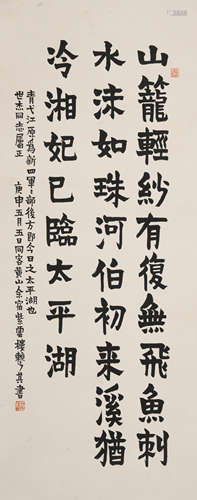 山籠輕紗有復無飛魚刺
水沫如珠河伯初来溪猶
冷湘妃已臨太平湖
青弋江原為新四軍之部後方即今日之太平湖也
世杰同志屬正
庚申五月五日同客黄山余宿紫雲樓賴少其書